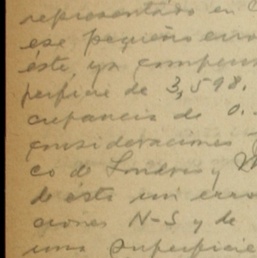 representado en
ese pequeño erro
éste, ya compens
perficie de 3,598.
crepancia de 0.
consideraciones
co de Londres y M
de ésta un erro
ciones N-S y de
una superficie